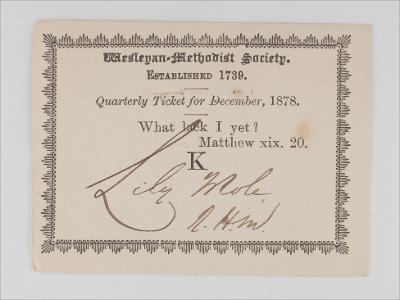 Wesleyan-Methodist Society.
ESTABLISHED 1739.
Quarterly Ticket for December, 1878.
What lack I yet?
Matthew xix. 20.
K
Lily Mole